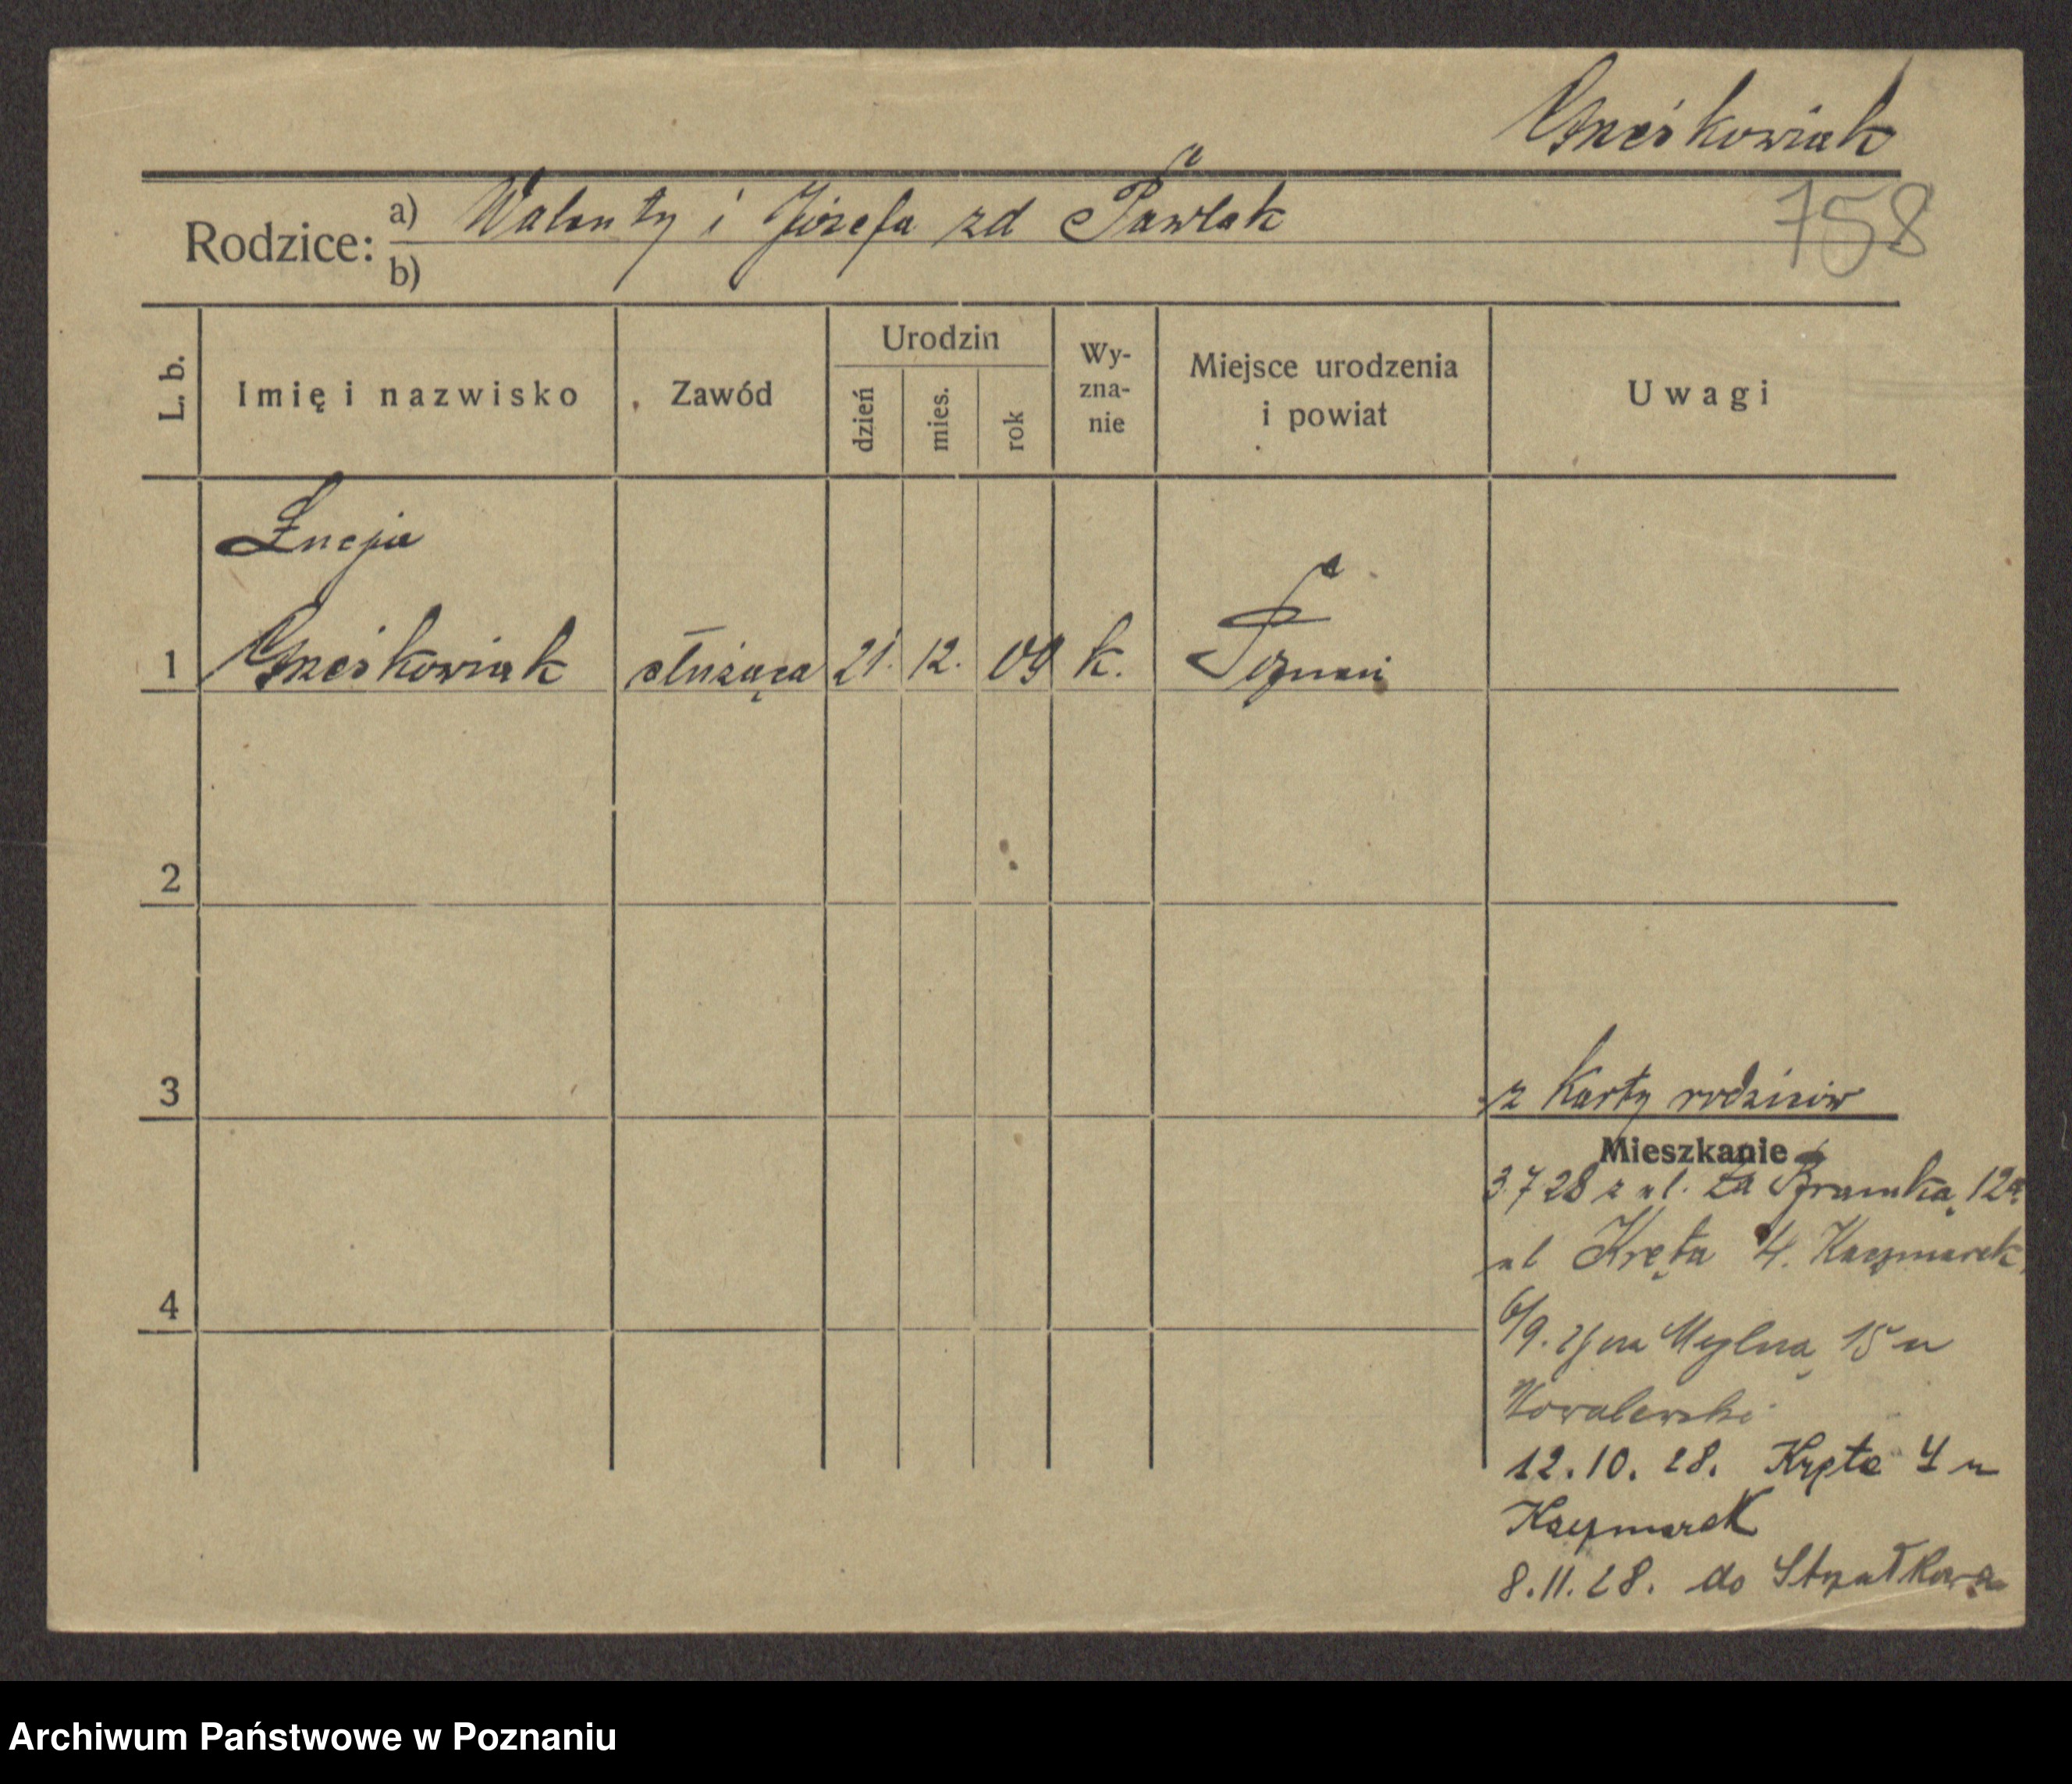 Grześkowiak
758
Rodzice: a) Walenty i Józefa zd Pawlak
b)
L. b. Imię i nazwisko Zawód Urodzin dzień mies. rok Wyznanie Miejsce urodzenia i powiat Uwagi
Łucja
1 Grześkowiak służąca 21. 12. 09 k. Poznań
2
3 z Karty rodziców
Mieszkanie
3.7 28 z ul. Za Bramką 12a
ul Kręta 4. Kaczmarek
4
6/9. na Młylną 15 u
Kowalewski
12.10.28. Kręta 4 u
Kaczmarek
8.11.28. do Strzałkowa
Archiwum Państwowe w Poznaniu